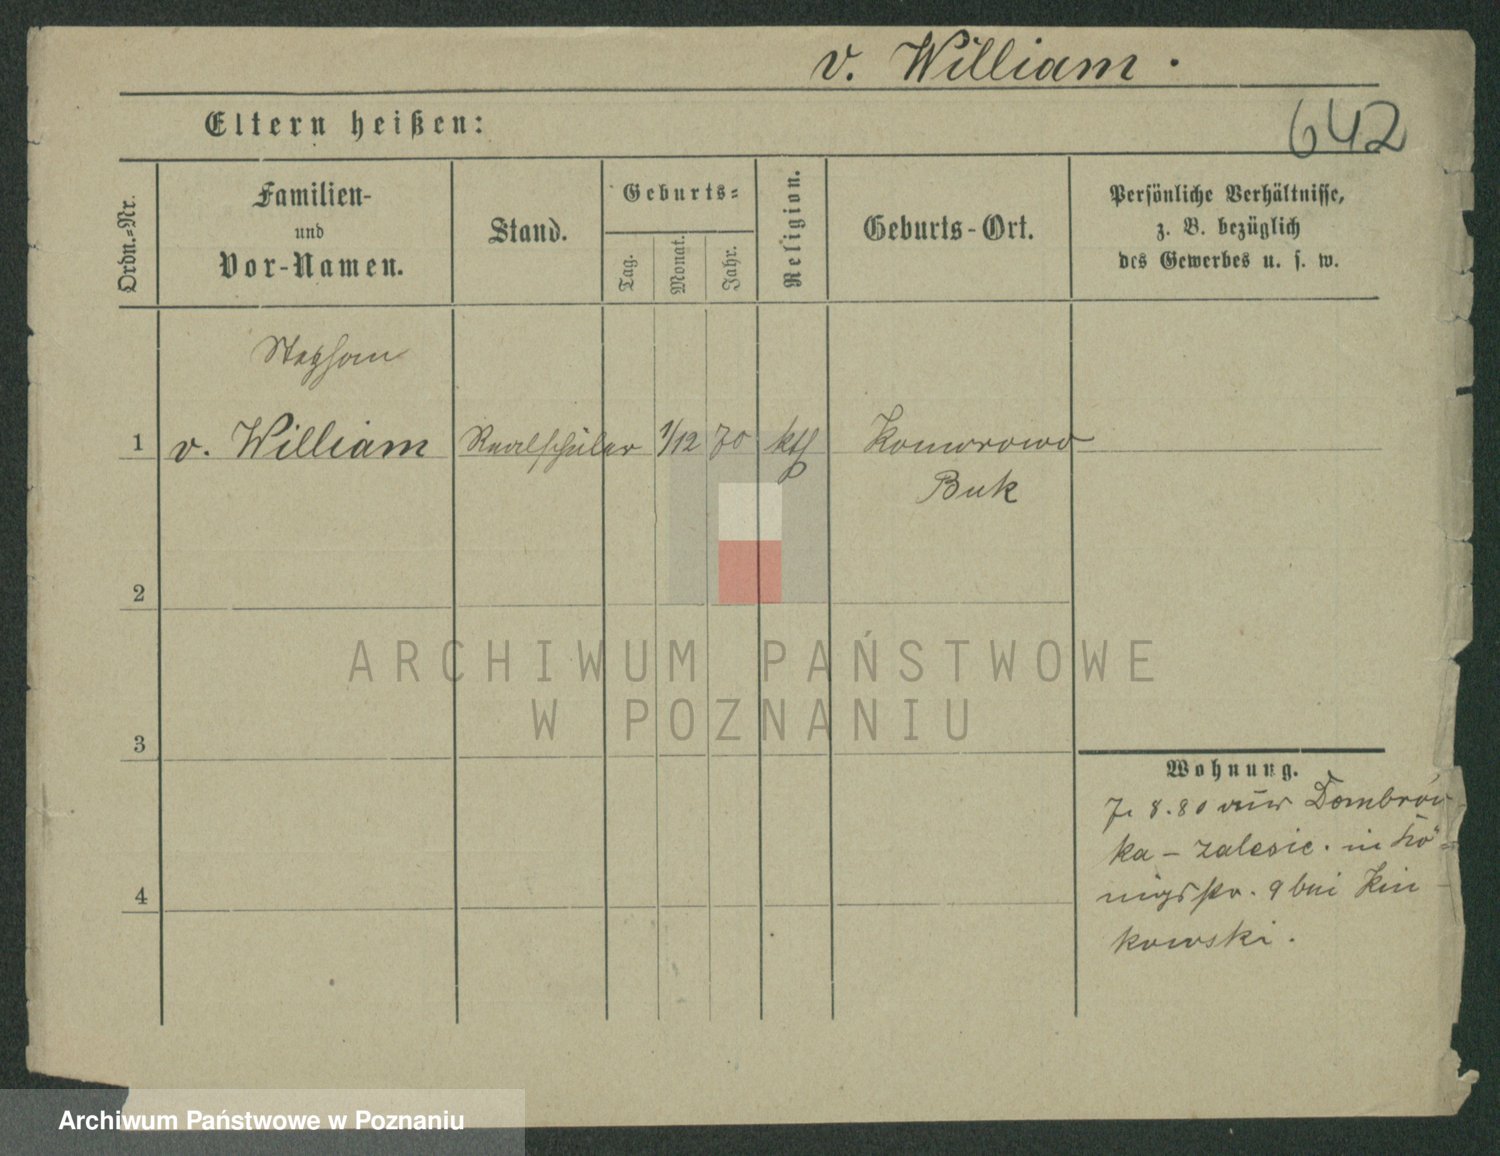 v. William.
642
Eltern heißen:
Ordn.-Nr.
Familien-
und
Vor-Namen.
Stand.
Geburts-
Tag.
Monat.
Jahr.
Religion.
Geburts-Ort.
Persönliche Verhältnisse,
z. B. bezüglich
des Gewerbes u. s. w.
Stephan
1 v. William Realschüler 1/12 70 kth Komorowo
Buk
2
3
4
Wohnung.
7. 8. 80 Dombrow
ka - zalesie. in Kö-
nigsstr. 9 bei Kin-
kowski.
ARCHIWUM PAŃSTWOWE
W POZNANIU
Archiwum Państwowe w Poznaniu